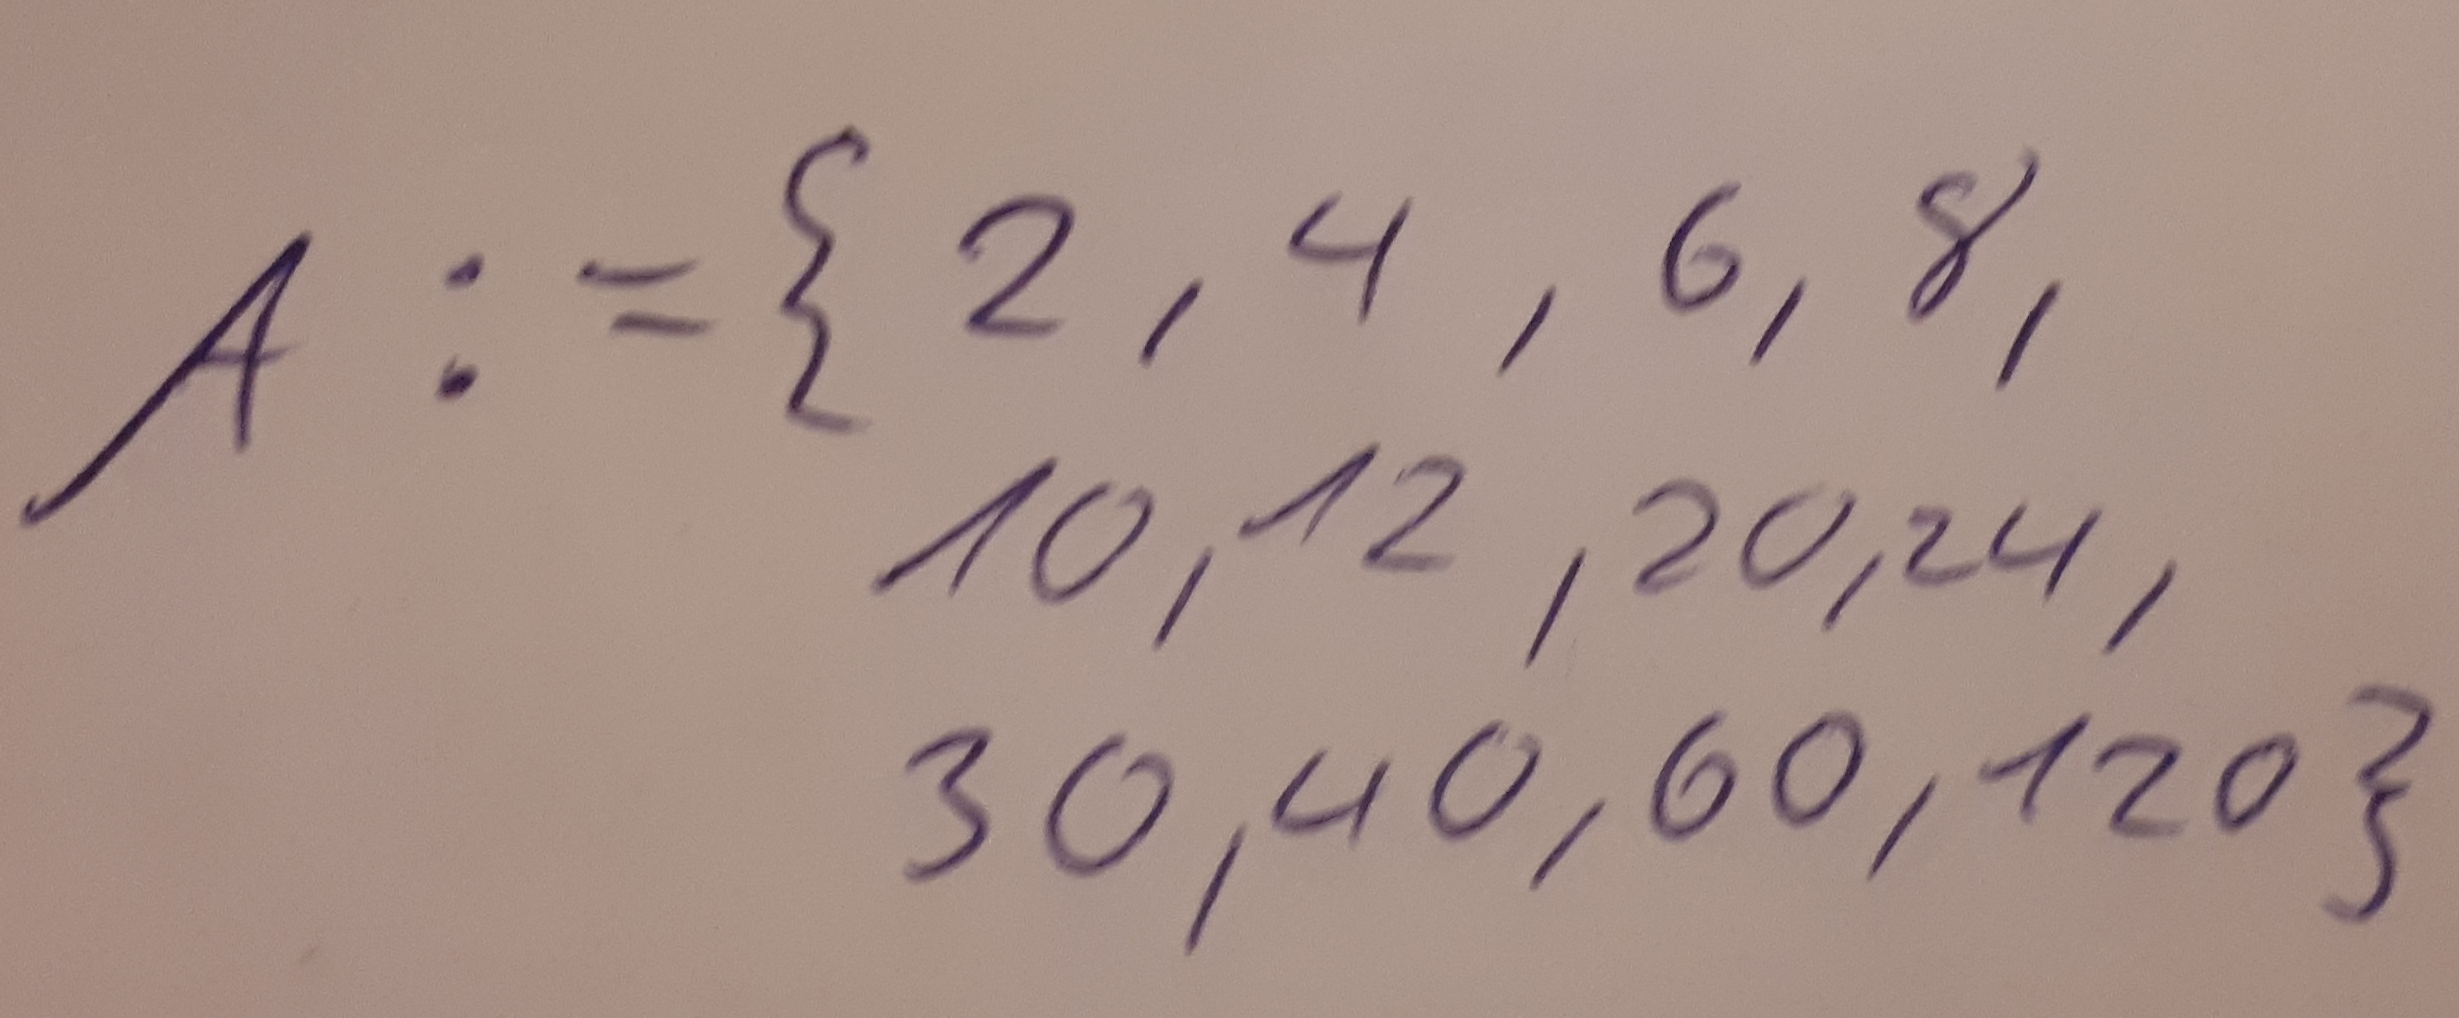 A := {2, 4, 6, 8,
10, 12, 20, 24,
30, 40, 60, 120}